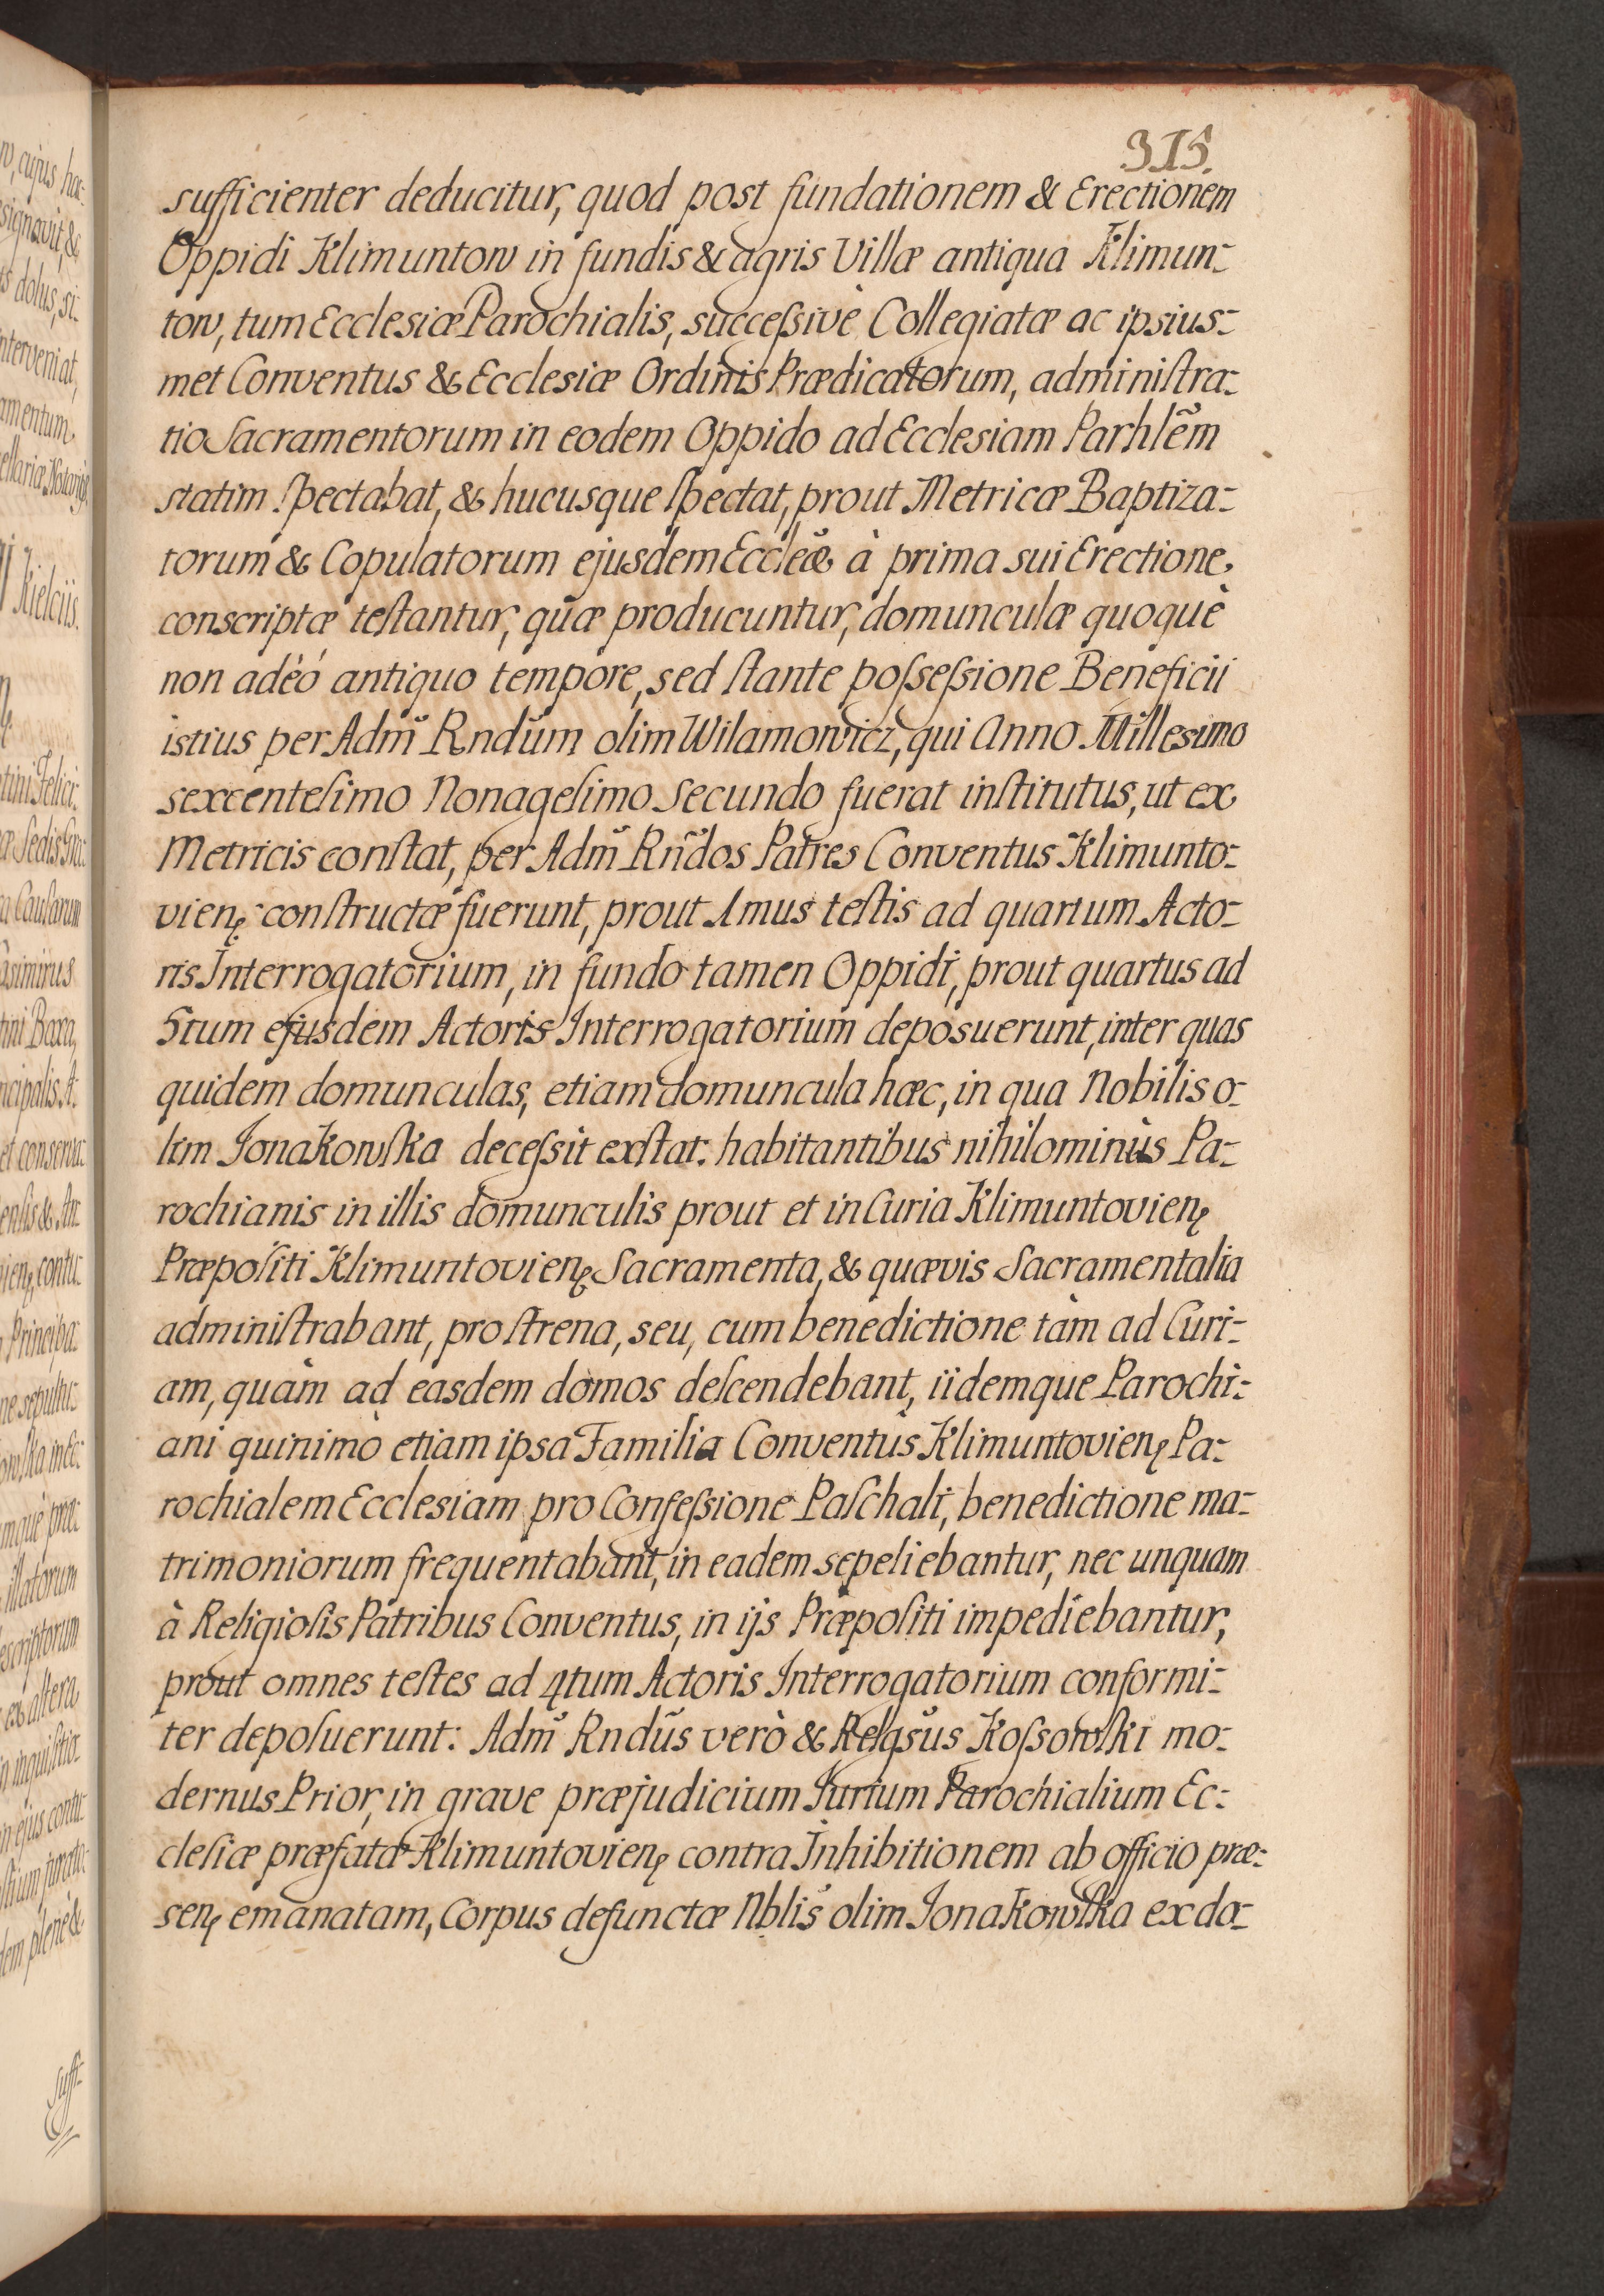 315.
sufficienter deducitur, quod post fundationem & Erectionem
Oppidi Klimuntow in fundis & agris Villæ antiqua Klimun-
tow, tum Ecclesiæ Parochialis, succeßivè Collegiatæ ac ipsius-
met Conventus & Ecclesiæ Ordinis Prædicatorum, adminiſtra-
tio Sacramentorum in eodem Oppido ad Ecclesiam Parhlẽm
statim ſpectabat, & hucusque ſpectat, prout Metricæ Baptiza-
torum & Copulatorum ejusdem Eccleæ à prima sui Erectione
conscriptæ teſtantur, quæ producuntur, domunculæ quoquè
non adèó antiquo tempore, sed ſtante poſseſsione Beneficii
istius per Adm̃ Rndũm olim Wilamowicz, qui Anno Millesimo
sexcenteſimo Nonageſimo Secundo fuerat inſtitutus, ut ex
Metricis conſtat, per Adm̃ Rñdos Patres Conventus Klimunto-
vienȩ conſtructæ fuerunt, prout 1mus teſtis ad quartum Acto-
ris Interrogatorium, in fundo tamen Oppidi, prout quartus ad
5tum ejusdem Actoris Interrogatorium deposuerunt, inter quas
quidem domunculas, etiam domuncula hæc, in qua Nobilis o-
lim Jonakowſka deceſsit exſtat: habitantibus nihilominùs Pa-
rochianis in illis domunculis prout et in Curia Klimuntovienȩ
Præpoſiti Klimuntovienȩ Sacramenta, & quævis Sacramentalia
adminiſtrabant, pro ſtrena, seu, cum benedictione tàm ad Curi-
am, quàm ad easdem domos deſcendebant, iidemque Parochi-
ani quinimò etiam ipsa Familia Conventus Klimuntovienȩ Pa-
rochialem Ecclesiam pro Confeſsione Paſchali, benedictione ma-
trimoniorum frequentabant, in eadem sepeliebantur, nec unquam
à Religioſis Patribus Conventus, in ijs Præpoſiti impediebantur,
prout omnes teſtes ad 4tum Actoris Interrogatorium conformi-
ter depoſuerunt: Adm̃ Rndũs verò & Relgsũs Koſsowſki mo-
dernus Prior, in grave præjudicium Jurium Parochialium Ec-
cleſiæ præfatæ Klimuntovienȩ contra Inhibitionem ab officio præ-
senȩ emanatam, Corpus defunctæ Nblis̃ olim Jonakowſka ex do-